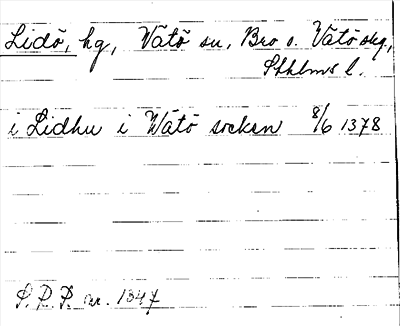 Lidö, hg, Vätö sn, Bro o. Vätö skg,
Sthlms l.
i Lidhu i Wätö socken 8/6 1378
S.R.P. nr. 1347